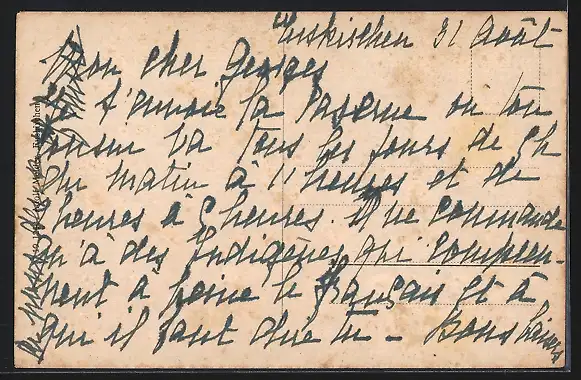 Euskirchen 31 Août
Mon cher Georges
Je t'envoie la Caserne ou ton
cousin va tous les jours de 9h
du matin à 11 heures et de
heures à 5 heures. Il ne commande
qu'à des Indigènes qui compren-
nent à peine le français et à
qui il faut dire tu - Bons baisers